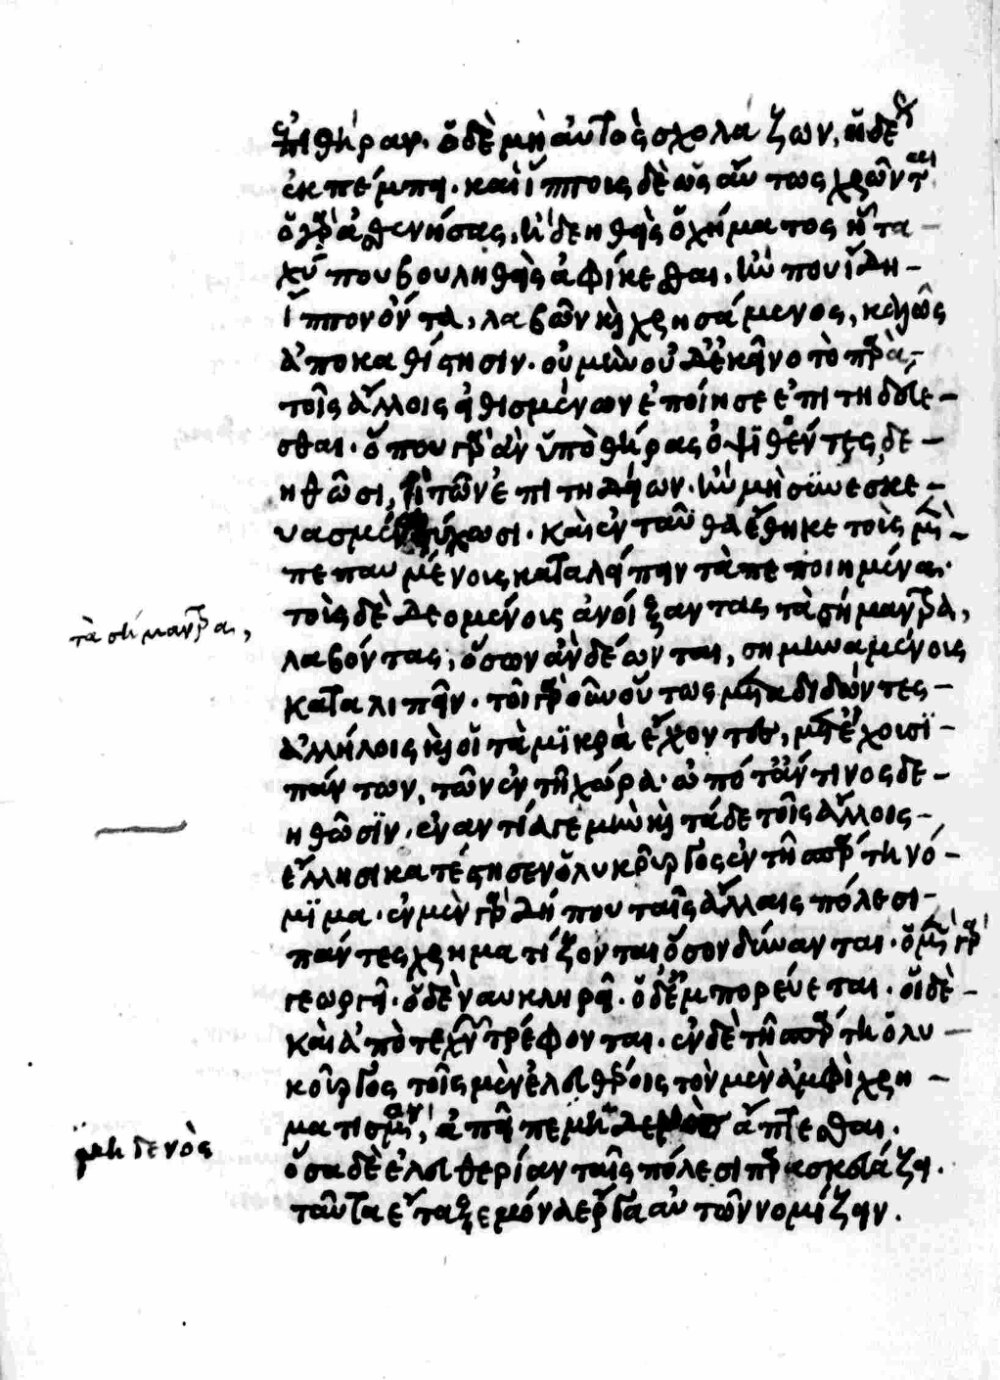 ἐπὶ θήραν· ὁ δὲ μὴ αὐτὸς σχολάζων, ἡδέως
ἐκπέμπει· καὶ ἵπποις δὲ ὡσαύτως χρῶνται
ὁ γὰρ ἀσθενήσας, ἢ δεηθεὶς ὀχήματος ἢ τα-
χύ που βουληθεὶς ἀφικέσθαι, ἤν που ἴδῃ
ἵππον ὄντα, λαβὼν καὶ χρησάμενος, καλῶς
ἀποκαθίστησιν· οὐ μὴν οὐδ' ἐκεῖνο τὸ παρὰ
τοῖς ἄλλοις εἰθισμένον ἐποίησε ἐπιτηδεύε-
σθαι· ὅπου γὰρ ἂν ὑπὸ θήρας ὀψισθέντες δε-
ηθῶσι, τῶν ἐπιτηδείων· ἢν μὴ συνεσκε-
υασμένοι τύχωσι· καὶ ἐνταῦθα ἔθηκε τοὺς μὲν
πεπαυμένους καταλείπειν τὰ πεποιημένα·
τοὺς δὲ δεομένους ἀνοίξαντας τὰ σήμαντρα,
τὰ σήμαντρα,
λαβόντας, ὅσων ἂν δέωνται, σημηναμένους
καταλιπεῖν· τοιγαροῦν οὕτως μεταδιδόντες
ἀλλήλοις καὶ οἱ τὰ μικρὰ ἔχοντες, μετέχουσι
πάντων, τῶν ἐν τῇ χώρᾳ· ὁπόταν τινος δε-
ηθῶσιν· ἐναντία γε μὴν καὶ τάδε τοῖς ἄλλοις
ἕλλησι κατέστησεν ὁ λυκοῦργος ἐν τῇ σπάρτῃ νό-
μιμα· ἐν μὲν γὰρ δή που ταῖς ἄλλαις πόλεσι
πάντες χρηματίζονται ὅσον δύνανται· ὁ μὲν γὰρ
γεωργεῖ· ὁ δὲ ναυκληρεῖ· ὁ δ' ἐμπορεύεται· οἱ δὲ
καὶ ἀπὸ τεχνῶν τρέφονται· ἐν δὲ τῇ σπάρτῃ ὁ λυ-
κοῦργος τοῖς μὲν ἐλευθέροις τῶν μὲν ἀμφὶ χρη-
ματισμὸν, ἀπεῖπε μηδενὸς ἅπτεσθαι·
μηδενὸς
ὅσα δὲ ἐλευθερίαν ταῖς πόλεσι παρασκευάζει·
ταῦτα ἔταξε μόνα ἔργα αὐτῶν νομίζειν.